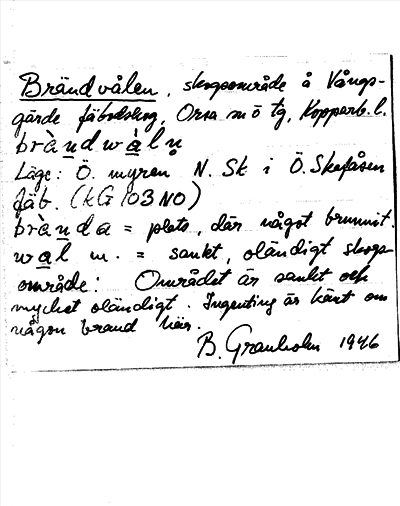 Brändvålen, skogsområde å Vångs-
gärde fäbodskog, Orsa sn ö tg, Kopparb. l.
bràndwàlṇ
Läge: Ö. myren N. Sk i Ö. Skefåsen
fäb. (kG 103 NO)
brànda = plats, där något brunnit.
wal m. = sankt, oländigt skogs-
område: Området är sankt och
mycket oländigt. Ingenting är känt om
någon brand här.
B. Granholm 1946